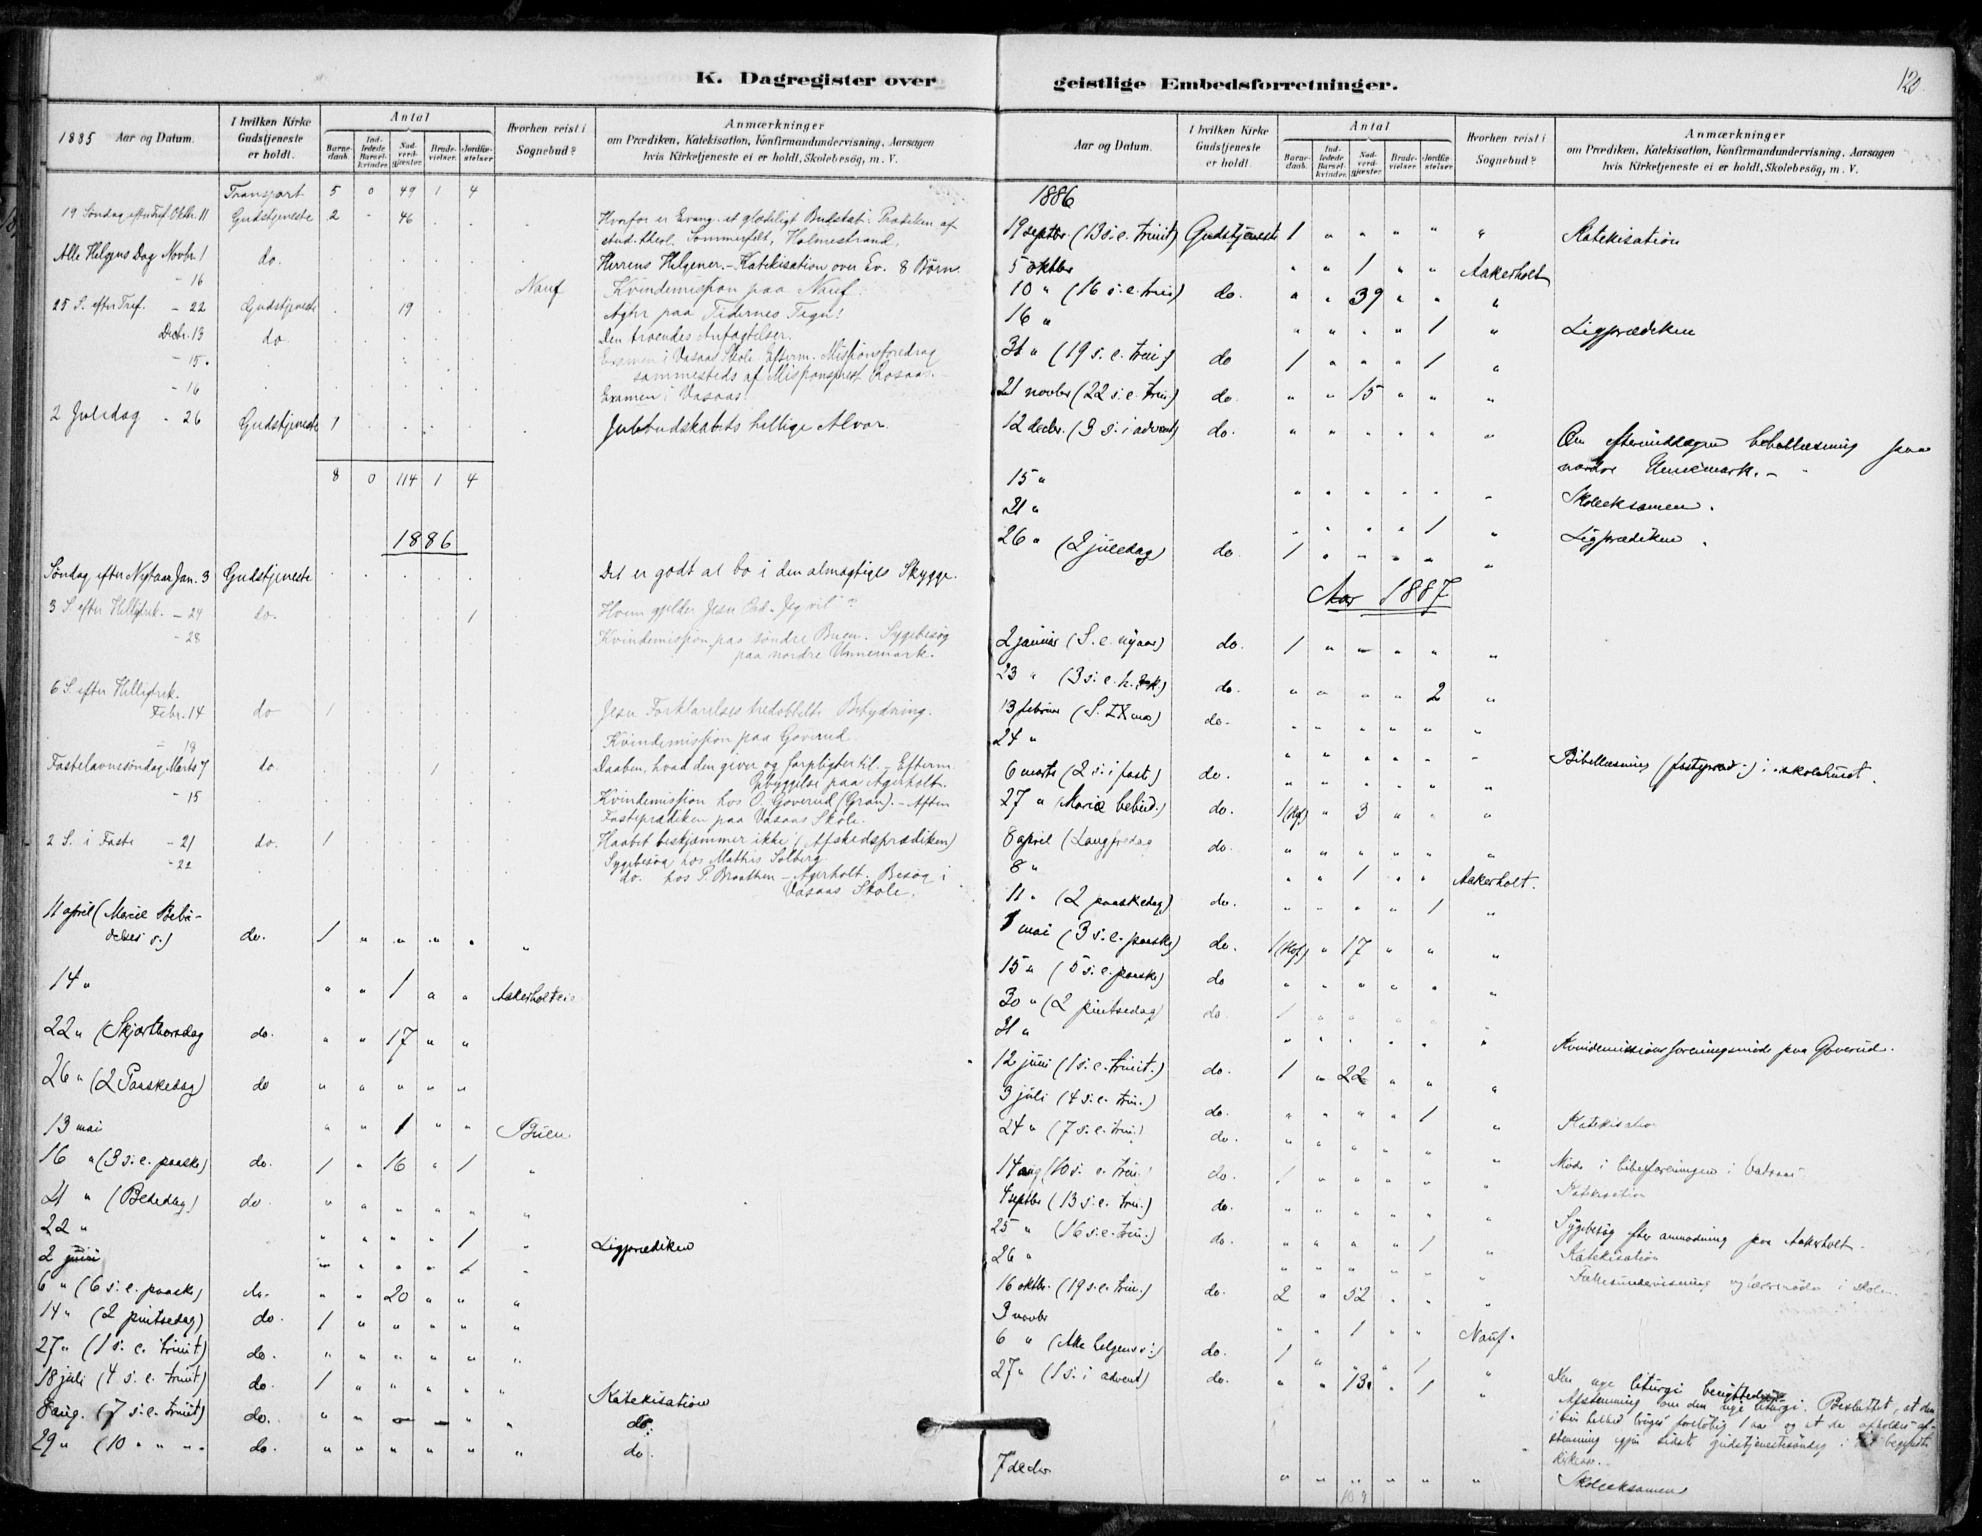 K. Dagregister over
1885 Aar og Datum.
I hvilken Kirke Gudstjeneste er holdt.
Antal
Barnedaab. Indledede Barselkvinder. Nadverdgjæster. Brudevielser. Jordfæstelser.
Hvorhen reist i Sognebud?
Anmærkninger
om Prædiken, Katekisation, Konfirmandundervisning, Aarsagen
hvis Kirketjeneste ei er holdt, Skolebesøg, m. V.
Transport 5 0 49 1 4
19 Søndag efter Tref. Oktbr. 11 Gudstjeneste 2 " 46 Hvorfor er Evang. et glædeligt Budskab. Prædiken af
stud. theol. Sommerfelt, Holmestrand.
Alle Helgens Dag Novbr. 1 do. Herrens Helgener. - Katekisation over Ev. 8 Børn.
- 16 Nauf Kvindemission paa Nauf.
25 S. efter Tref. - 22 Gudstjeneste 19 Agter paa Tidernes Tegn!
Decbr. 13 do Den troendes Anfægtelser.
- 15. Examen i Vasaas Skole. Efterm. Missionsforedrag
sammesteds af Missionsprest Rosaas.
- 16 Examen i Vasaas.
2 Juledag - 26 Gudstjeneste 1 Julebudskabets hellige Alvor.
8 0 114 1 4
1886
Søndag efter Nytaar Jan. 3 Gudstjeneste Det er godt at bo i den almægtiges Skygge.
3 S. efter Helligtrek. - 24 do. 1 Hvem gjelder Jesu Ord "Jeg vil"?
- 28 Kvindemission paa søndre Buen. Sygebesøg
paa nordre Unnemark.
6 S. efter Helligtrek.
Febr. 14 do 1 Jesu Forklarelses tredobbelte Betydning.
- 18 Kvindemission paa Goverud.
Fastelavnssøndag Marts 7 do. 1 Daaben, hvad den giver og forpligter til. - Efterm.
Opbyggelse paa Agerholt.
- 15 Kvindemission hos O. Goverud (Gran). - Aften
Fasteprædiken paa Vasaas Skole.
2 S. i Faste - 21 do. 1 Haabet beskjæmmer ikke (Afskedsprædiken)
- 22 Sygebesøg hos Mathis Solberg
do. hos P. Braathen - Agerholt. Besøg i
Vasaas Skole.
11 april (Mariæ Bebu-
delses s.) do. 1 " " " " "
14 " " " 1 " " Aakerholteie
22 " (Skjærthorsdag do. " " 17 " "
26 " (2 Paaskedag) do " " " " "
13 mai " " 1 " " Buen.
16 " (3 s. e. paaske) do. 1 " 16 " 1 "
21 " (Bededag) do " " " " " "
22 " " " " " 1 Ligprædiken
2 juni " " " " 1 "
6 " (6 s. e. paaske) do. " " 20 " " "
14 " (2 pintsedag) do. 1 " " " " "
27 " (1 s. e. trinit) do. " " " " " "
18 juli (4 s. e. trinit) do. 1 " " " " "
8 aug. (7 s. e. trinit) do. " " " " " " Katekisation
do.
29 " (10 " " " do. " " " " " " do.
geistlige Embedsforretninger.
120
Aar og Datum.
I hvilken Kirke Gudstjeneste er holdt.
Antal
Barnedaab. Indledede Barselkvinder. Nadverdgjæster. Brudevielser. Jordfæstelser.
Hvorhen reist i Sognebud?
Anmærkninger
om Prædiken, Katekisation, Konfirmandundervisning, Aarsagen
hvis Kirketjeneste ei er holdt, Skolebesøg, m. V.
1886
19 septbr (13 s. e. trinit) Gudstjeneste 1 " " " " " Katekisation
5 oktbr " " 1 " " Aakerholt
10 " (16 s. e. trin) do. " " 39 " " "
16 " " " " " 1 " Ligprædiken
31 " (19 s. e. trin.) do 1 " " " 1 "
21 novbr (22 s. e. trin.) do. " " 15 " " "
12 decbr. (3 s. i advent) do. " " " " " " Om eftermiddagen bibellæsning paa
nordre Unnemark. -
15 " " " " " " " Skoleeksamen.
21 " " " " " 1 " Ligprædiken.
26 " (2 juledag) do. 1 " " " " "
Aar 1887
2 januar (S. e. nyaar) do. 1 " " " " "
23 " (3 s. e. h. 3 k.) do. " " " " 2 "
13 februar (S. LX mo) do. " " " " " "
24 " " " " " " " Bibellæsning (fastepræd.) i skolehuset.
6 marts (2 s. i fast.) do. " " " " " "
27 " (Mariæ bebud.) do. 1 (Hof) " 3 " " "
8 april (Langfredag do. " " " " " "
8 " " " 1 " " Aakerholt.
11 " (2 paaskedag) do. " " " " 1 "
1 mai (3 s. e. paaske) do. 1 (Hof) " 17 " " "
15 " (5 s. e. paaske) do " " " " " "
30 " (2 pintsedag) do. 1 " " " " "
31 " " " " " " " Kvindemissionsforeningsmøde paa Goverud.
12 juni (1 s. e. trinit.) do. 1 " 22 " " "
3 juli (4 s. e. trin.) do. " " " " 1 " Katekisation
24 " (7 s. e. trin.) do. " " " " " " Møde i bibelforeningen i Vasaas
14 aug (10 s. e. trin.) do. 1 " " " " " Katekisation
4 septbr (13 s. e. trin.) do. " " " " " " Sygebesøg efter anmodning paa Aakerholt.
25 " (16 s. e. trin.) do. " " " " 1 " Katekisation
26 " " " " " " "
16 oktbr. (19 s. e. trin.) do. 2 " 52 " " "
3 novbr " " 1 " " Nauf.
6 " (Alle helgens s.) do. 1 " " " 1 "
27 " (1 s. i advent) do. " " 13 " 1 " Den nye liturgi
Afstemning om den nye liturgi. Besluttet, at den
7 decbr. " " " " " " Skoleeksamen